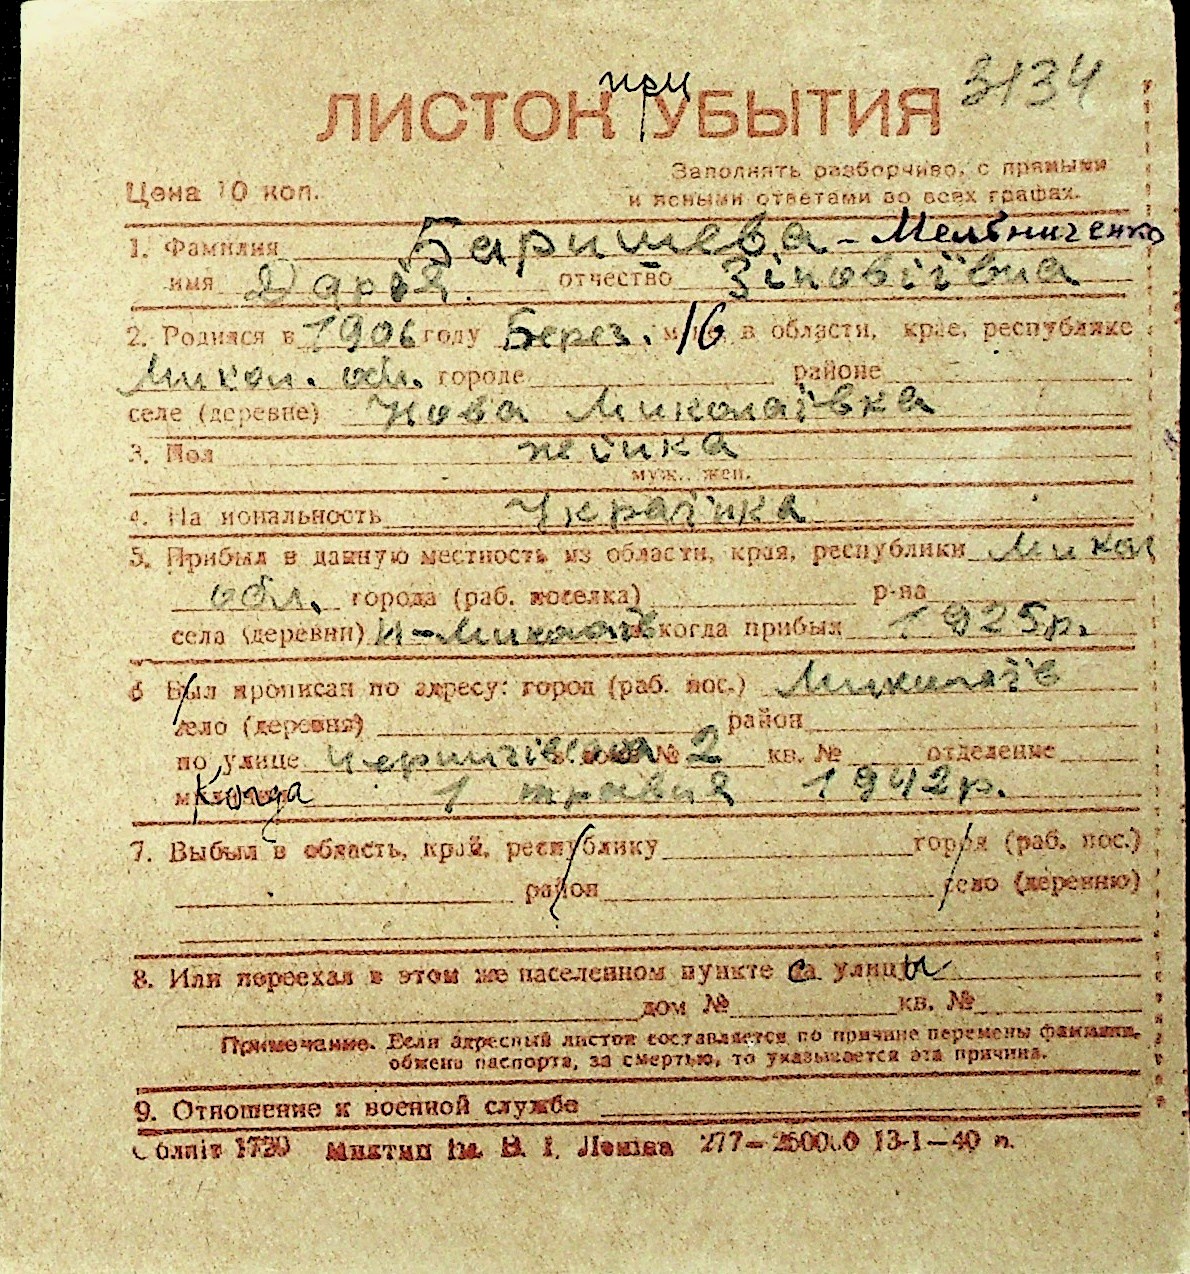 при 3134
ЛИСТОК УБЫТИЯ
Цена 10 коп. Заполнять разборчиво, с прямыми
и ясными ответами во всех графах.
1. Фамилия Баришева - Мельниченко
имя Дарія отчество Зіновіївна
2. Родился в 1906 году Берез. 16 в области, крае, республике
Микол. обл. городе районе
селе (деревне) Нова Миколаївка
3. Пол жінка
муж., жен.
4. Национальность Українка
5. Прибыл в данную местность из области, края, республики Микол
обл. города (раб. поселка) р-на
села (деревни) Н-Миколаїв когда прибыл 1925р.
6 Был прописан по адресу: город (раб. пос.) Миколаїв
село (деревня) район
по улице Чернигівська № 2 кв. № отделение
Когда 1 травня 1942р.
7. Выбыл в область, край, республику город (раб. пос.)
район село (деревню)
8. Или переехал в этом же населенном пункте с улицы
дом № кв. №
Примечание. Если адресный листок составляется по причине перемены фамилии,
обмена паспорта, за смертью, то указывается эта причина.
9. Отношение к военной службе
Облліт 1720 Миктип ім. В. І. Леніна 277—250000 13-1—40 п.